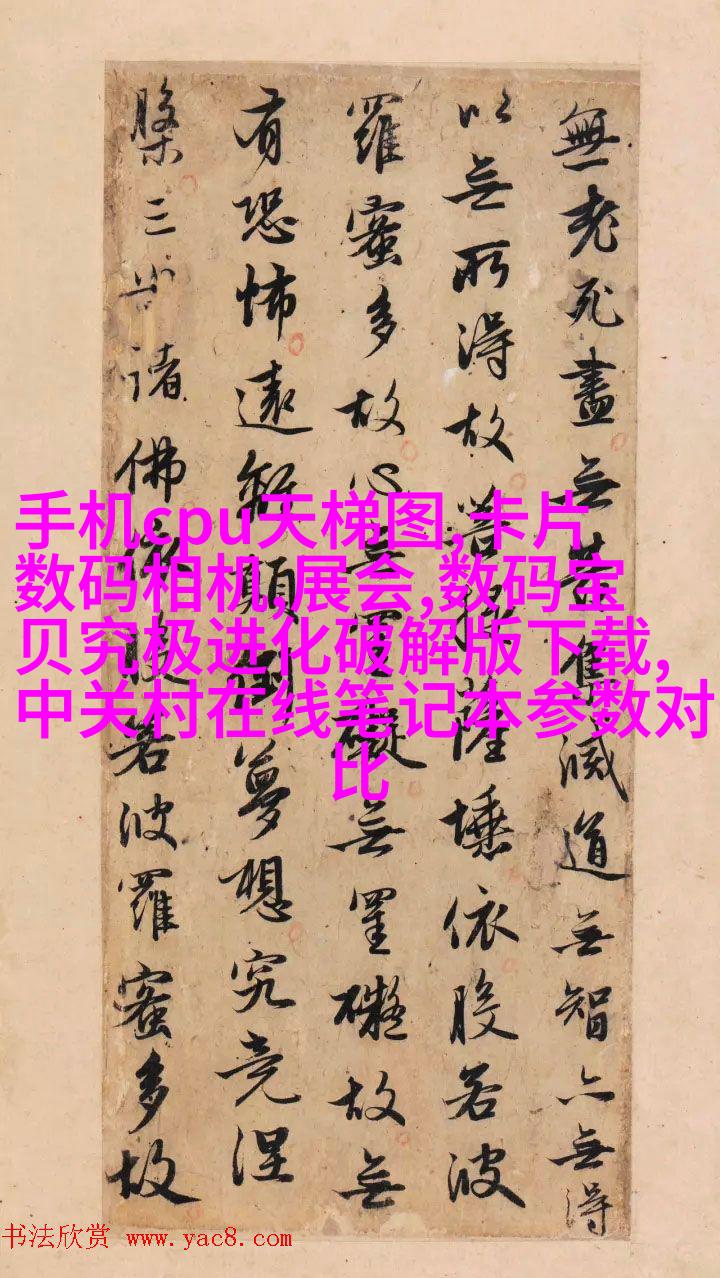 無老死盡无苦集滅道无智亦无得
以无所得故菩提薩埵依般若波
羅蜜多故心无罣礙无罣礙故无
有恐怖遠離顛倒夢想究竟涅
槃三世諸佛依般若波羅蜜多故
手机cpu天梯图,卡片
数码相机,展会,数码宝
贝究极进化破解版下载,
中关村在线笔记本参数对
比
书法欣赏 www.yac8.com